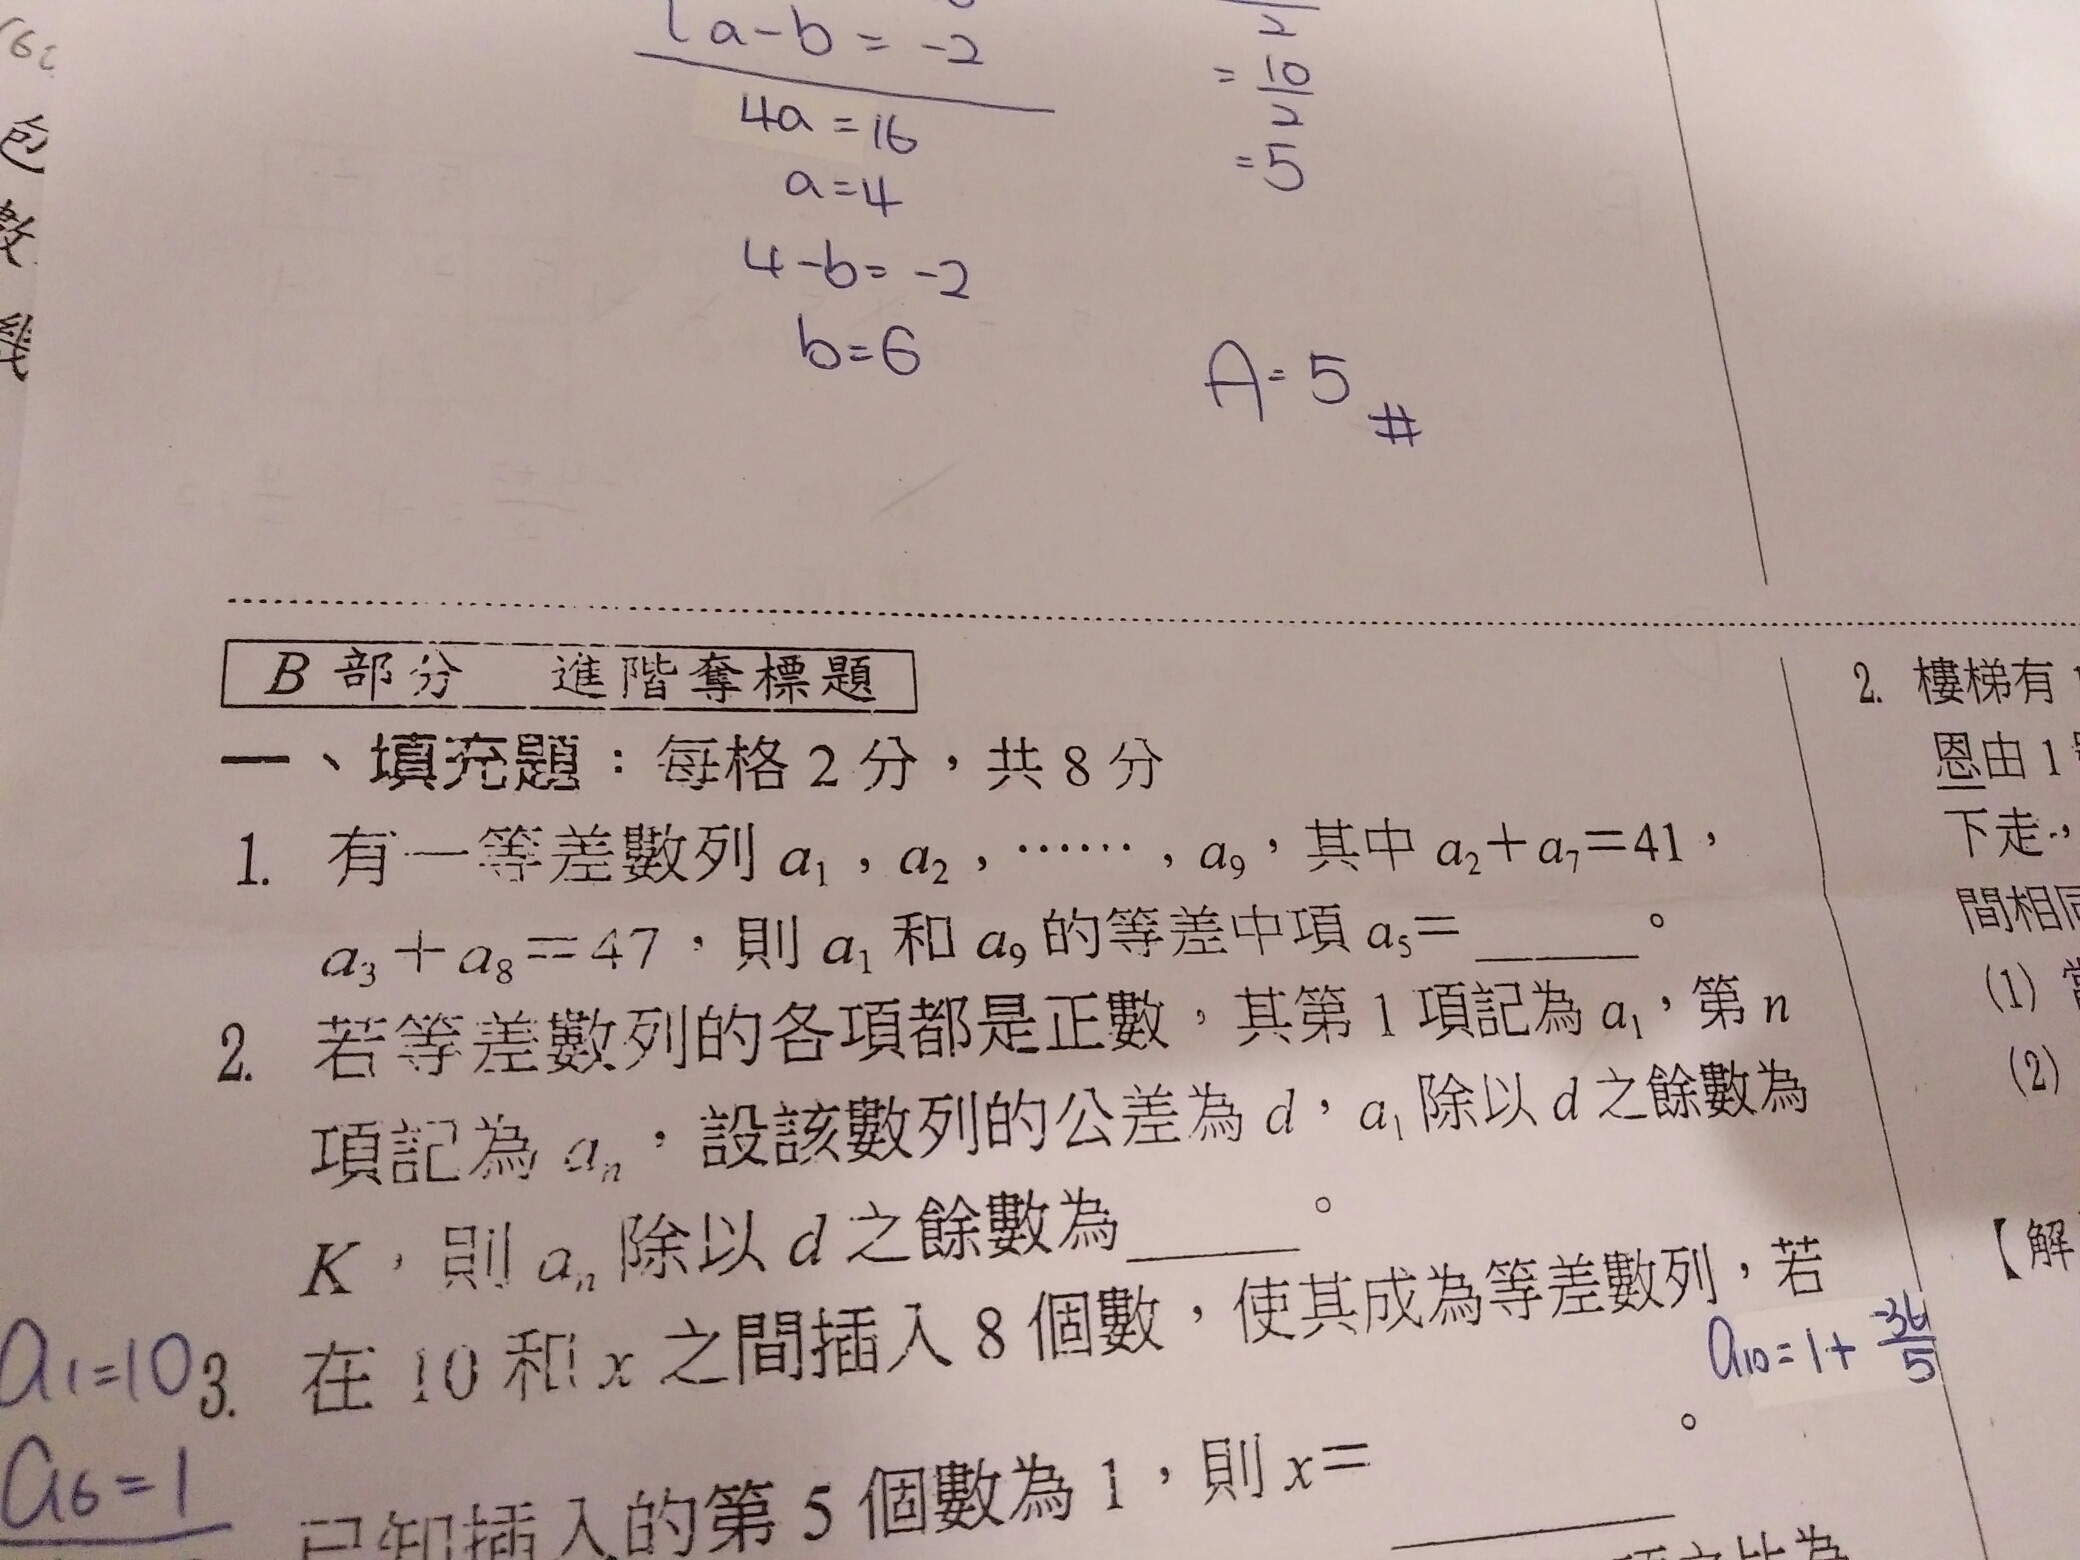 a-b=-2
4a=16
a=4
4-b=-2
b=6
2
=10/2
=5
A=5#
B部分 進階奪標題
一、填充題：每格2分，共8分
1. 有一等差數列a₁，a₂，……，a₉，其中a₂+a₇=41，
a₃+a₈=47，則a₁和a₉的等差中項a₅=_____。
2. 若等差數列的各項都是正數，其第1項記為a₁，第n
項記為aₙ，設該數列的公差為d，a₁除以d之餘數為
K，則aₙ除以d之餘數為_____。
a₁=10
3. 在10和x之間插入8個數，使其成為等差數列，若
a₁₀=1+-36/5
a₆=1
已知插入的第5個數為1，則x=_____。
2. 樓梯有
恩由1
下走，
間相同
(1)
(2)
【解